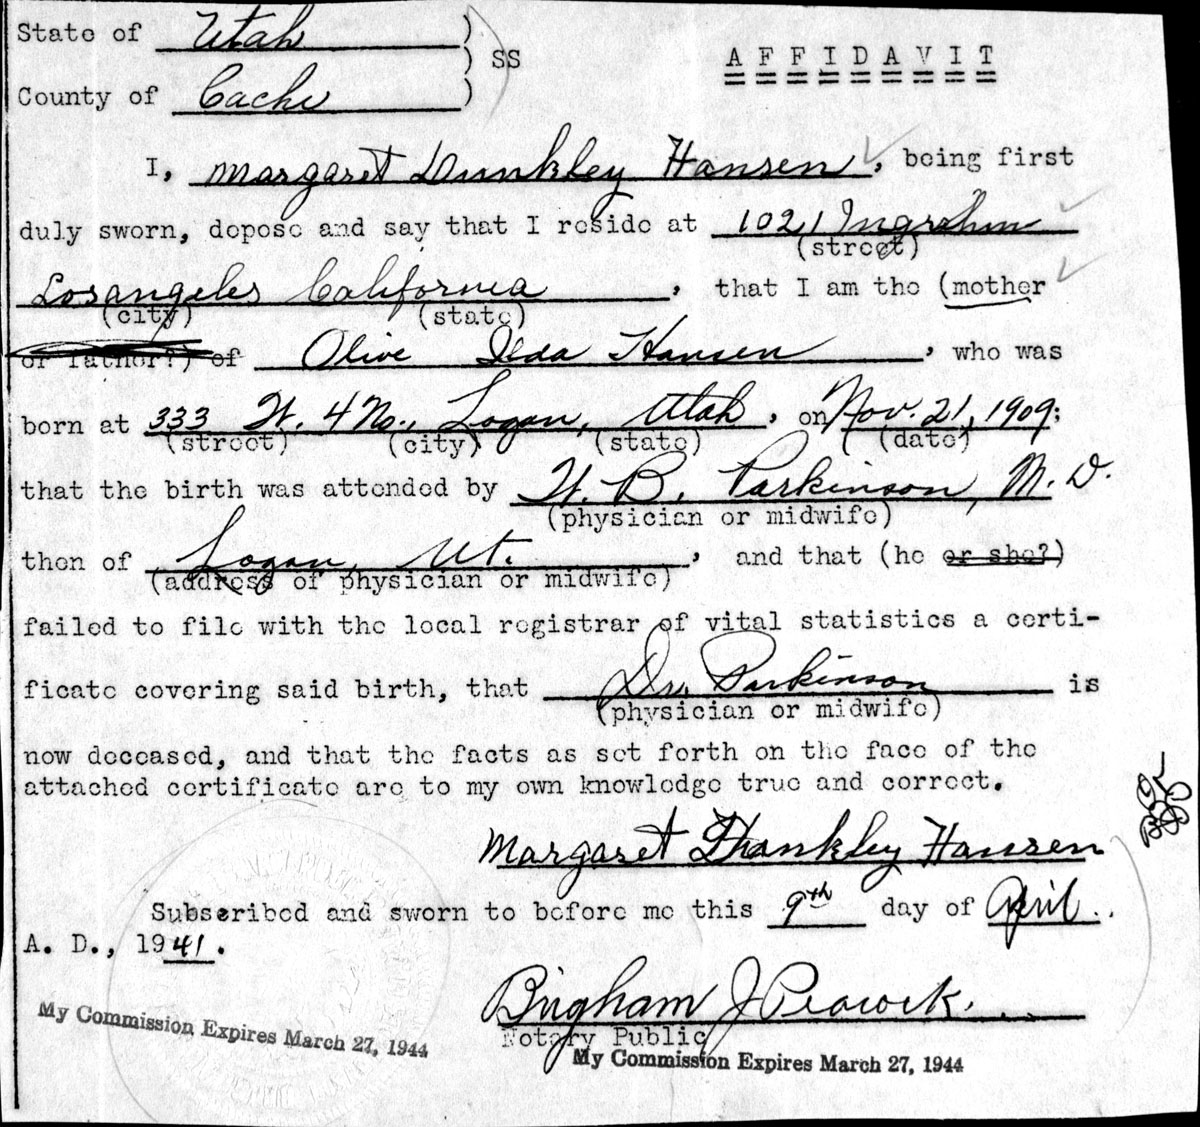 State of Utah )
) SS
County of Cache )
AFFIDAVIT
I, Margaret Dunkley Hansen, being first
duly sworn, depose and say that I reside at 1021 Ingrahm
(street)
Los angeles California, that I am the (mother
(city) (state)
or father?) of Olive Ilda Hansen, who was
born at 333 W. 4 No., Logan, Utah, on Nov. 21, 1909;
(street) (city) (state) (date)
that the birth was attended by W. B. Parkinson, M.D.
(physician or midwife)
then of Logan, Ut., and that (he or she?)
(address of physician or midwife)
failed to file with the local registrar of vital statistics a certi-
ficate covering said birth, that Dr. Parkinson is
(physician or midwife)
now deceased, and that the facts as set forth on the face of the
attached certificate are to my own knowledge true and correct.
Margaret Dunkley Hansen
Subscribed and sworn to before me this 9th day of April
A. D., 1941.
Brigham J Peacock.
Notary Public
My Commission Expires March 27, 1944
My Commission Expires March 27, 1944